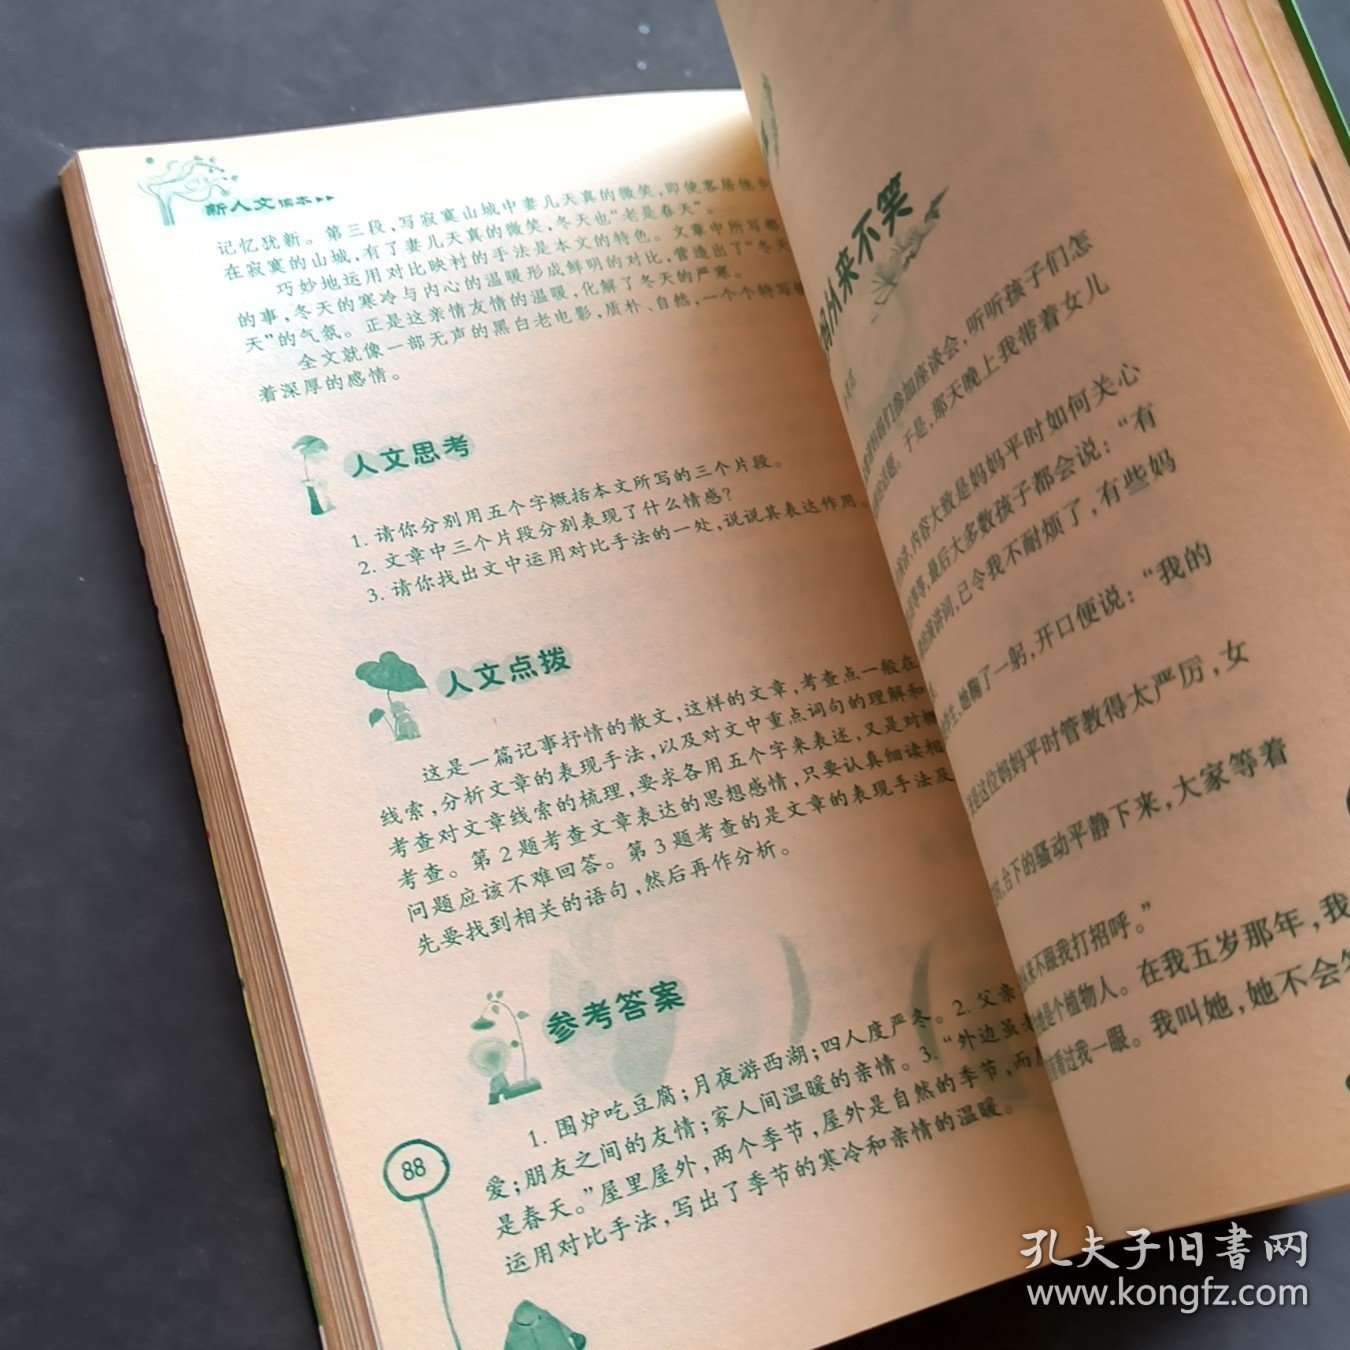 新人文读本
记忆犹新。第三段,写寂寞山城中妻儿天真的微笑,即使客居他乡
在寂寞的山城,有了妻儿天真的微笑,冬天也“老是春天”。
巧妙地运用对比映衬的手法是本文的特色。文章中所写
的事,冬天的寒冷与内心的温暖形成鲜明的对比,营造出了“冬天
天”的气氛。正是这亲情友情的温暖,化解了冬天的严寒。
全文就像一部无声的黑白老电影,质朴、自然,一个个特写
着深厚的感情。
人文思考
1. 请你分别用五个字概括本文所写的三个片段。
2. 文章中三个片段分别表现了什么情感?
3. 请你找出文中运用对比手法的一处,说说其表达作用。
人文点拨
这是一篇记事抒情的散文,这样的文章,考查点一般在
线索,分析文章的表现手法,以及对文中重点词句的理解和
考查对文章线索的梳理,要求各用五个字来表述,又是对概
考查。第2题考查文章表达的思想感情,只要认真细读相
问题应该不难回答。第3题考查的是文章的表现手法及
先要找到相关的语句,然后再作分析。
参考答案
1. 围炉吃豆腐;月夜游西湖;四人度严冬。2. 父亲
爱;朋友之间的友情;家人间温暖的亲情。3. “外边虽
是春天。”屋里屋外,两个季节,屋外是自然的季节,而
运用对比手法,写出了季节的寒冷和亲情的温暖。
88
妈从来不笑
们参加座谈会,听听孩子们怎
话题。于是,那天晚上我带着女儿
演讲,内容大致是妈妈平时如何关心
等等,最后大多数孩子都会说:“有
演讲词,已令我不耐烦了,有些妈
生,她鞠了一躬,开口便说:“我的
是这位妈妈平时管教得太严厉,女
,台下的骚动平静下来,大家等着
从来不跟我打招呼。”
她是个植物人。在我五岁那年,我
有看过我一眼。我叫她,她不会答
孔夫子旧书网
www.kongfz.com